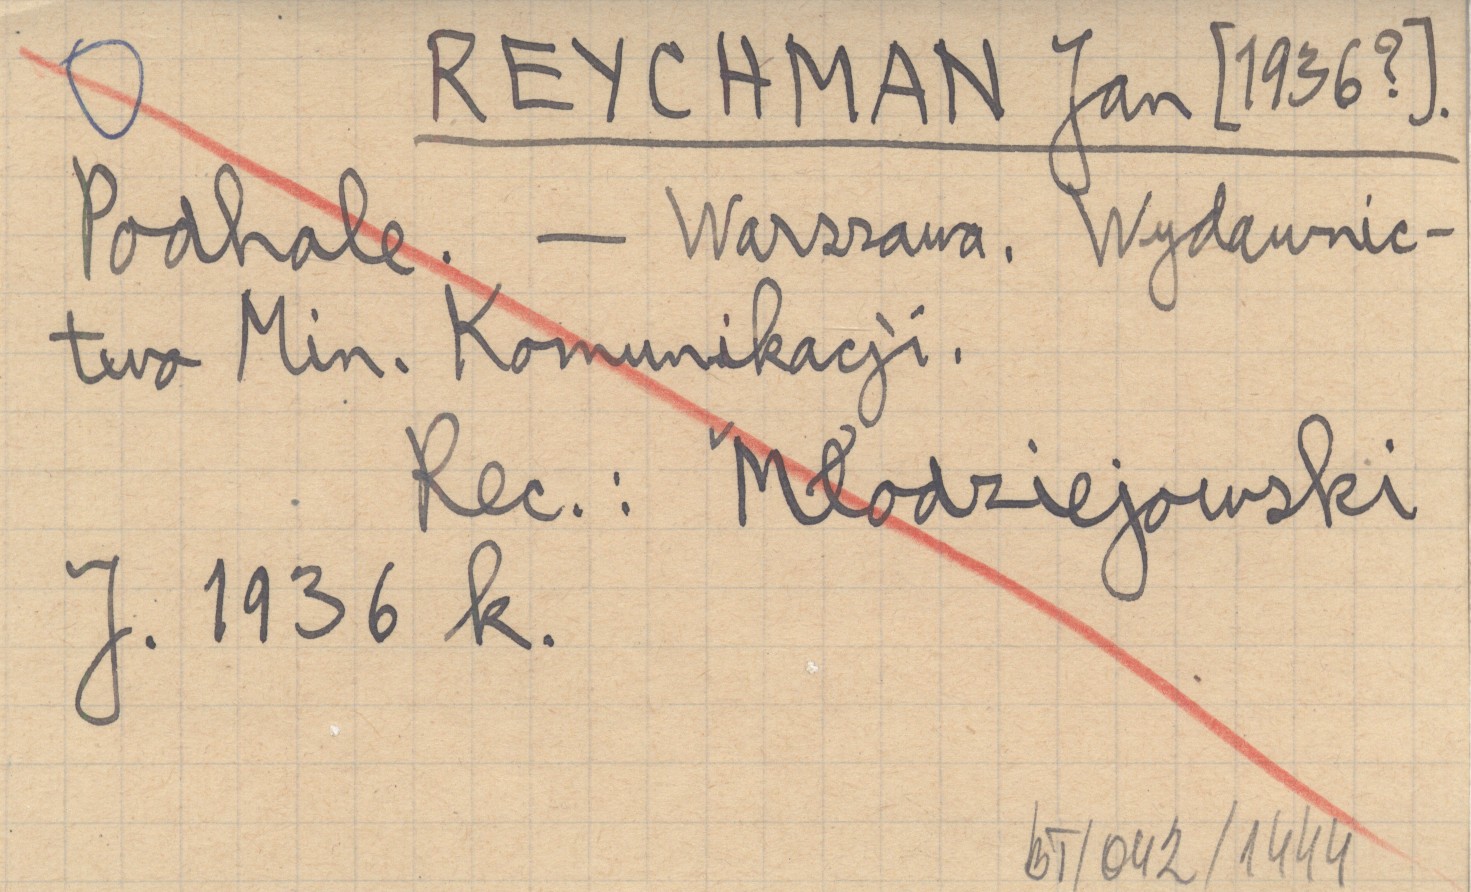 REYCHMAN Jan [1936?].
Podhale. — Warszawa. Wydawnic-
twa Min. Komunikacji.
Rec.: Młodziejowski
J. 1936 k.
BT/042/1444